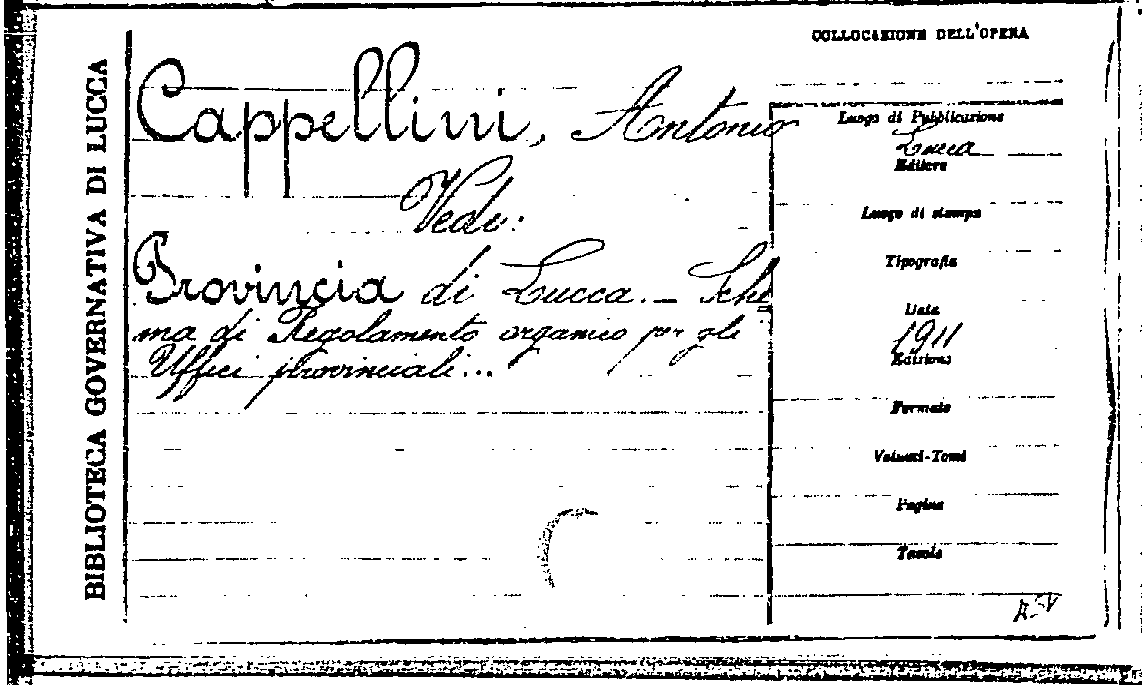 BIBLIOTECA GOVERNATIVA DI LUCCA
Cappellini, Antonio
Vedi:
Provincia di Lucca. - Sche
ma di Regolamento organico per gli
Uffici provinciali...
COLLOCAZIONE DELL'OPERA
Luogo di Pubblicazione
Lucca
Editore
Luogo di stampa
Tipografia
Data
1911
Edizione
Formato
Volumi-Tomi
Pagine
Tavole